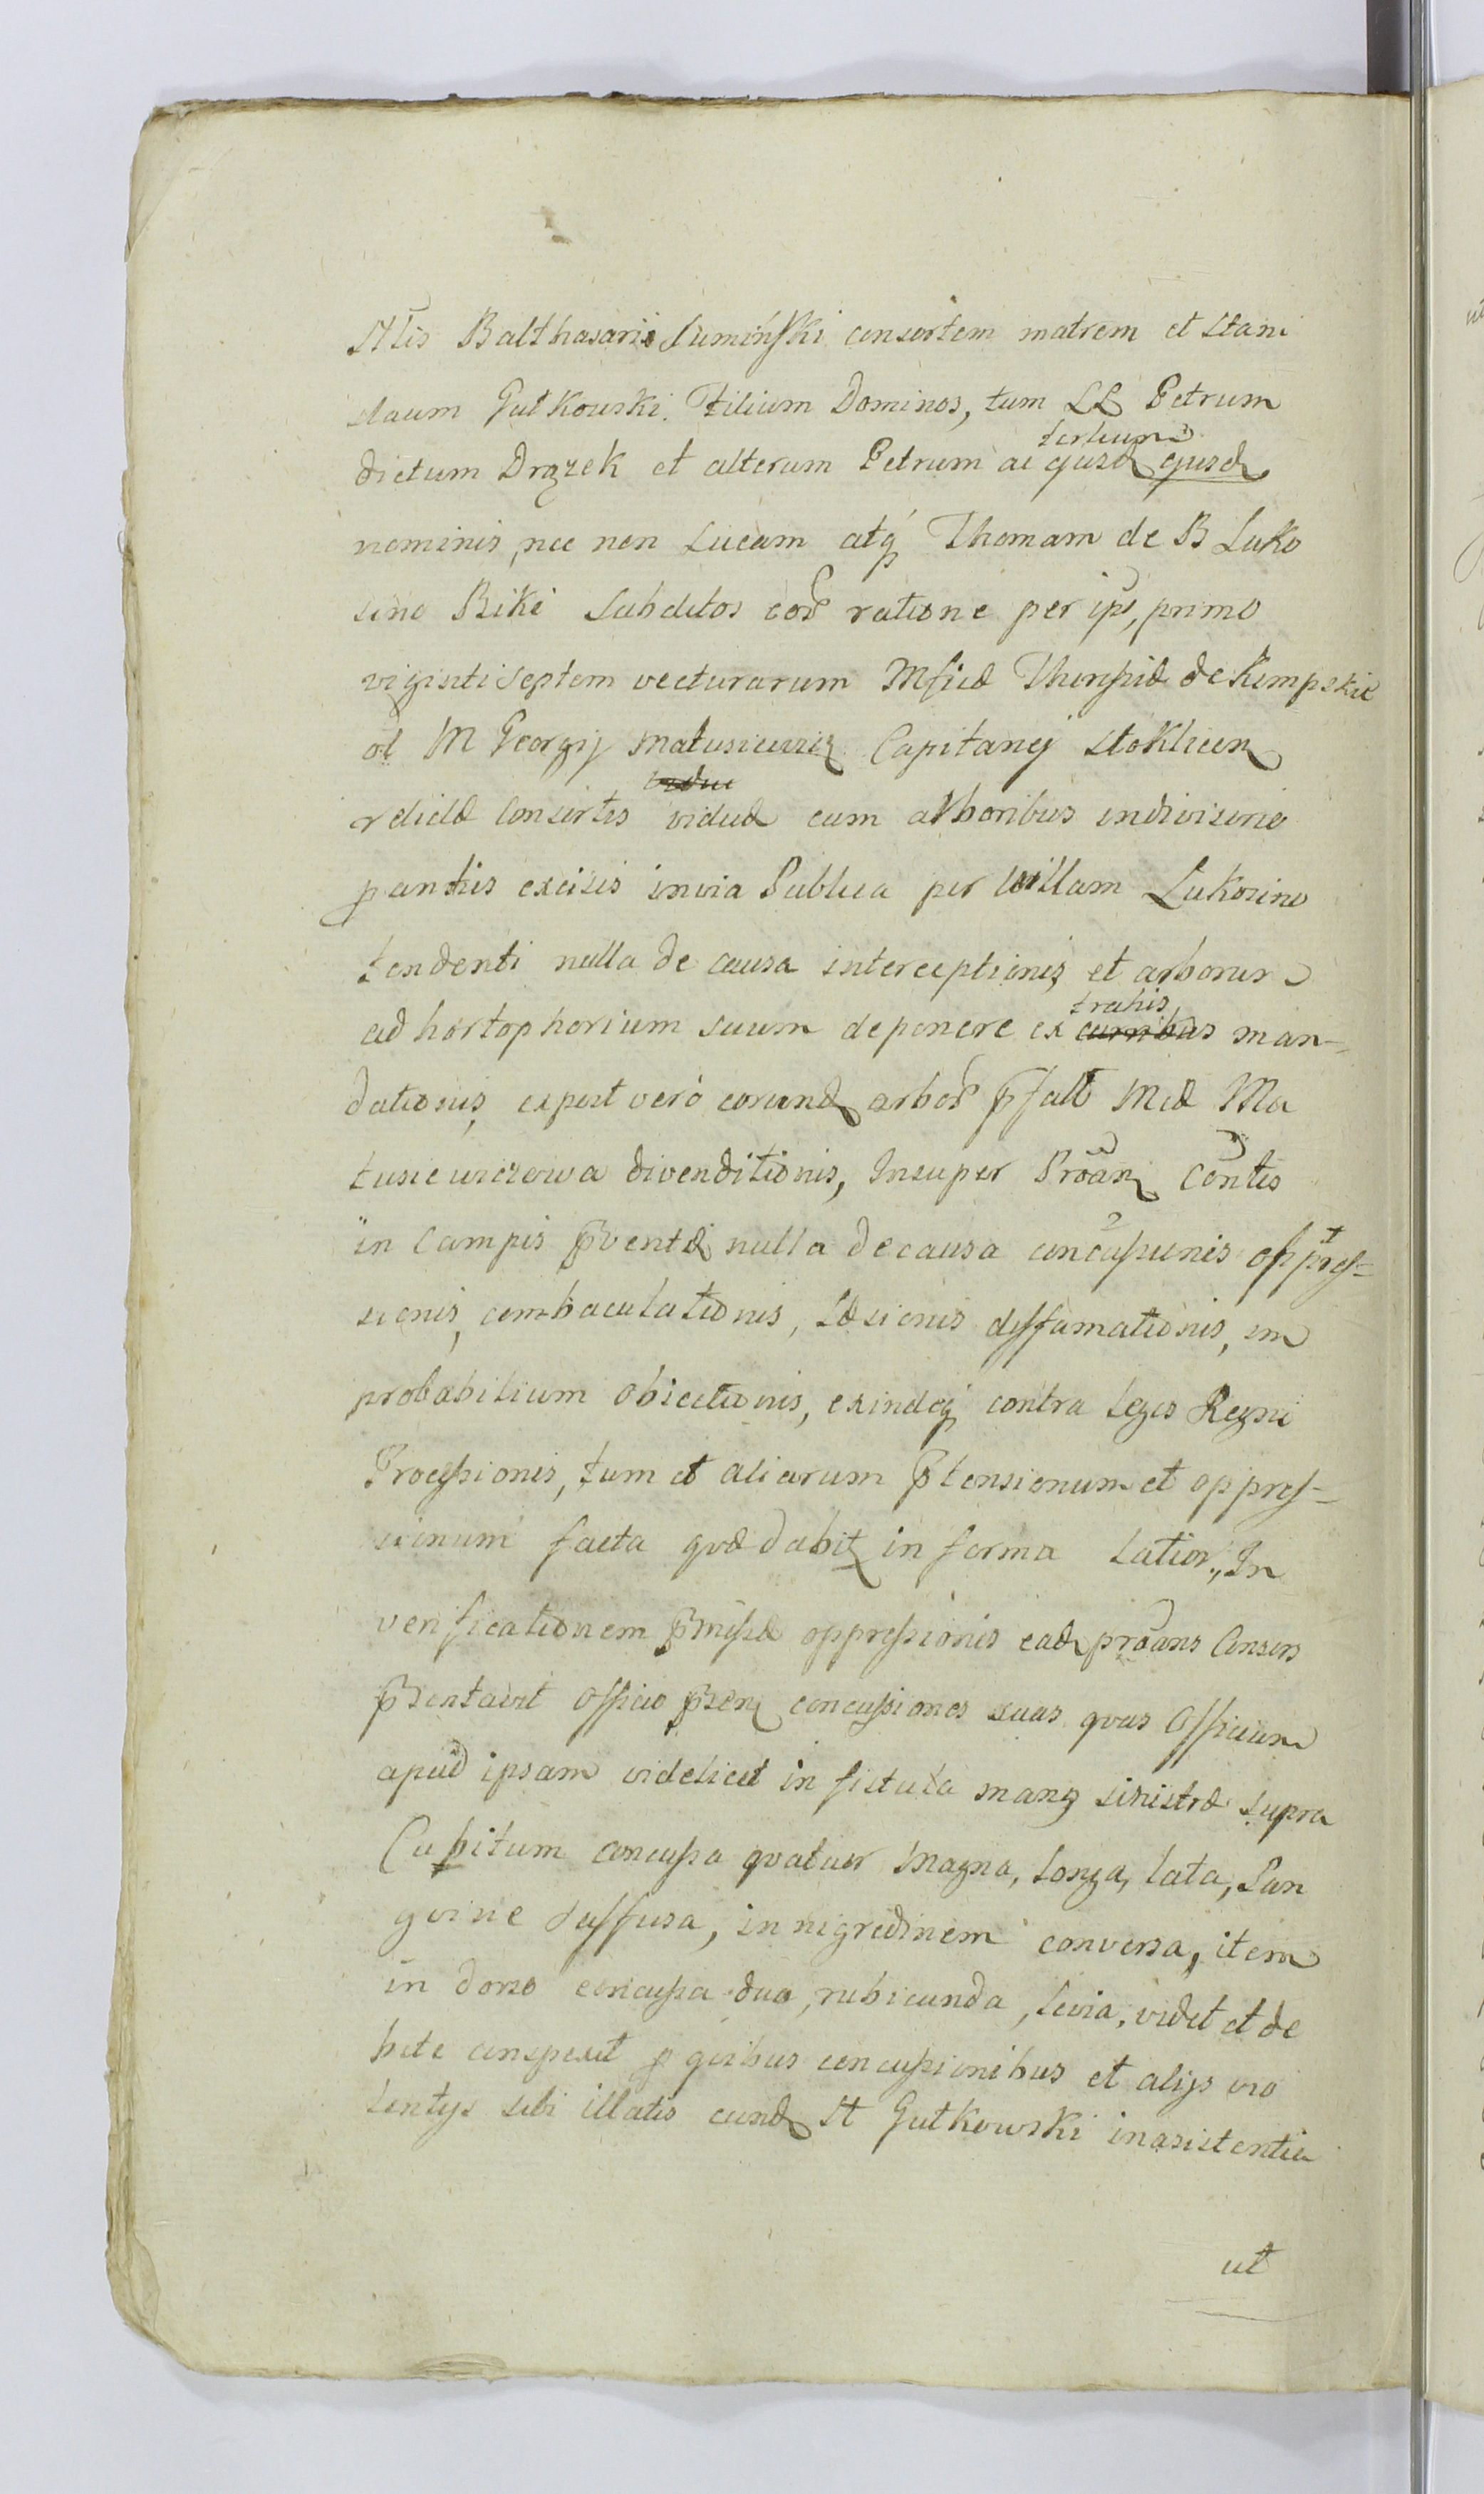 Mlis Balthasaris Sumiński consortem matrem et Stani
slaum Gutkowski Filium Dominos, tum LL Petrum
dictum Drązek et alterum Petrum ac tertium ejusd ejusd
nominis, nec non Lucam atq Thomam de B Luko
sino Biki Subditos eoď ratione per ips, primo
viginti septem vecturarum Mficæ Theresiæ de Kempskie
ol M Georgij Matusiewicz Capitanej Stoklicen
relictæ Consortis viduæ cum arboribus indivisione
pantis excisis in via Publica per Willam Lukosino
tendenti nulla de causa interceptionis et arborum
ad hortophorium suum deponere ex trahis curribus man-
dationis, expost vero eorund arboŕ p fate Mcæ Ma
tusiewiczowa divenditionis, Insuper Proan Contis
in Campis pventæ nulla de causa concussionis oppres-
sionis, combaculationis, Læsionis diffamationis, im
probabilium obiectionis, exindeq contra Leges Regni
Processionis, tum et aliarum ptensionum et oppres-
sionum facta qvæ dabit in forma Latior., In
verificationem pmissæ oppressionis ead proans Consors
psentavit Officio psen concussiones suas qvas Officium
apud ipsam videlicet in fistula manq sinistræ supra
Cubitum concussa qvatuor magna, longa, lata, San
gvine suffusa, in nigredinem conversa, item
in dorso concussa duo, rubicunda, levia, vidit et de
bite conspexit p qvibus concussionibus et alijs vio
lentijs sibi illatis eund M Gutkowski in asistentia
ut